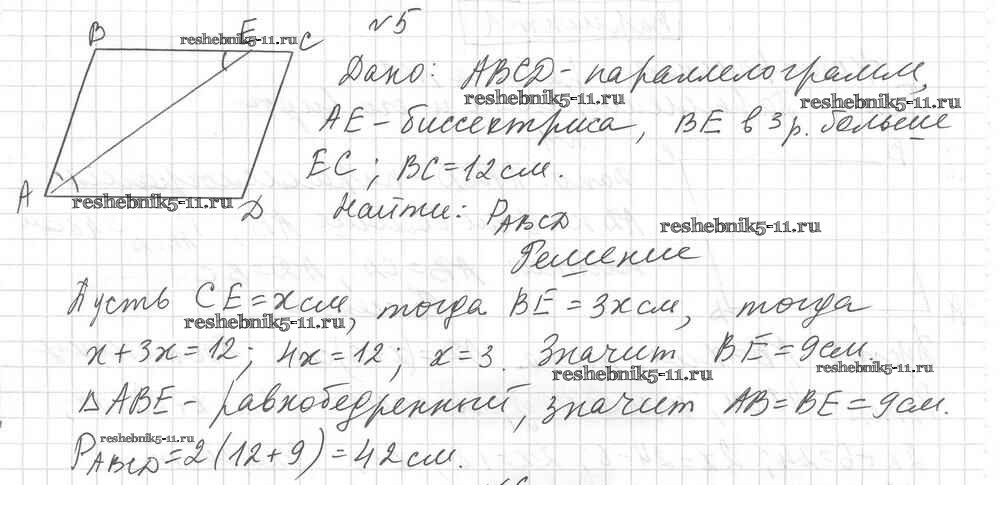 №5
B E C
reshebnik5-11.ru
Дано: ABCD - параллелограмм,
reshebnik5-11.ru reshebnik5-11.ru
AE - биссектриса, BE в 3 р. больше
EC; BC = 12 см.
A D
reshebnik5-11.ru
Найти: P_ABCD
reshebnik5-11.ru
Решение
Пусть CE = x см, тогда BE = 3x см, тогда
reshebnik5-11.ru
x + 3x = 12; 4x = 12; x = 3. Значит BE = 9 см.
reshebnik5-11.ru reshebnik5-11.ru
△ABE - равнобедренный, значит AB = BE = 9 см.
reshebnik5-11.ru
P_ABCD = 2(12+9) = 42 см.